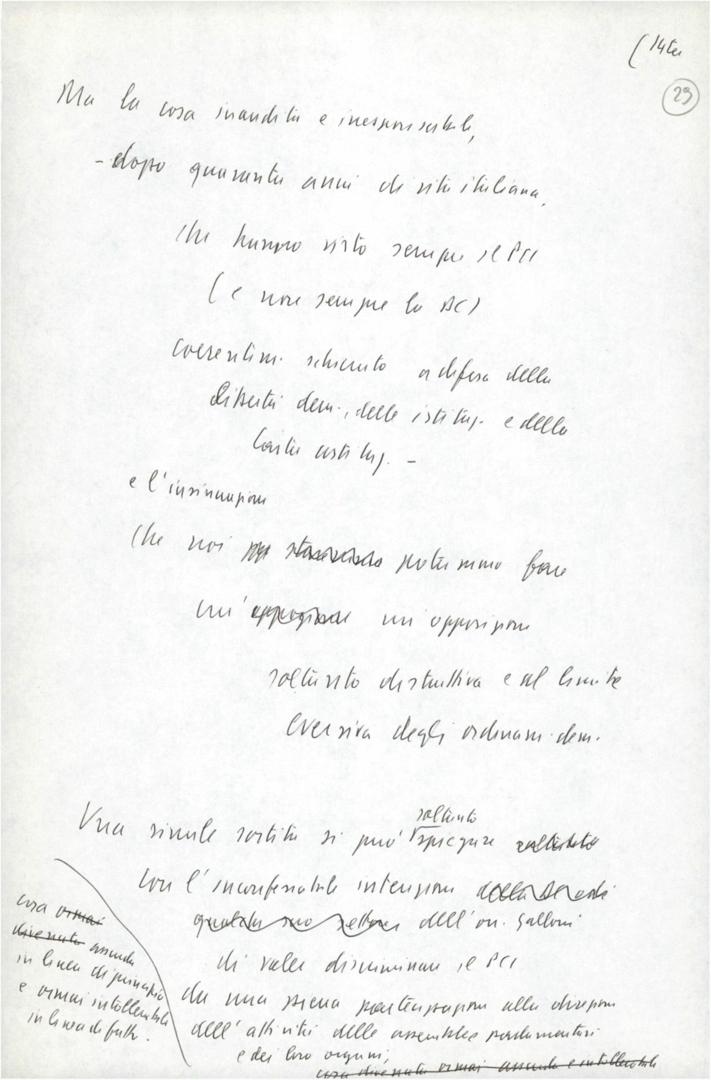 (14ter
29
Ma la cosa inaudita e irresponsabile,
- dopo quaranta anni di vita italiana,
che hanno visto sempre il PCI
(e non sempre la DC)
coerentem. schierato a difesa della
libertà dem., delle istituz. e della
Carta costituz. -
e l'insinuazione
che noi potremmo fare
un' un'opposizione
soltanto distruttiva e al limite
eversiva degli ordinam. dem.
Una simile sortita si può soltanto spiegare soltanto
con l'inconfessabile intenzione della DC o di
qualche suo settore dell'on. Galloni
di voler discriminare il PCI
da una piena partecipazione alla direzione
dell'attività delle assemblee parlamentari
e dei loro organi,
cosa divenuta ormai assurda e intollerabile
cosa ormai
divenuta assurda
in linea di principio
e ormai intollerabile
in linea di fatto.